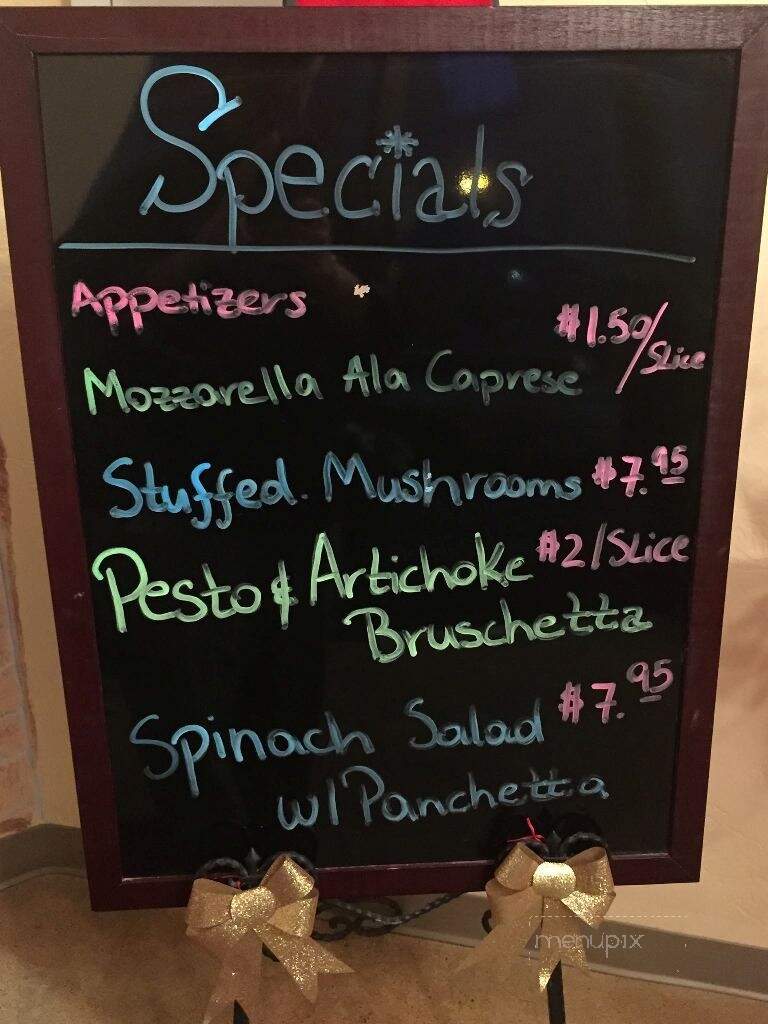 Specials
Appetizers
Mozzarella Ala Caprese $1.50/Slice
Stuffed. Mushrooms $7.95
Pesto & Artichoke $2/Slice
Bruschetta
Spinach Salad $7.95
w/Panchetta
menupix